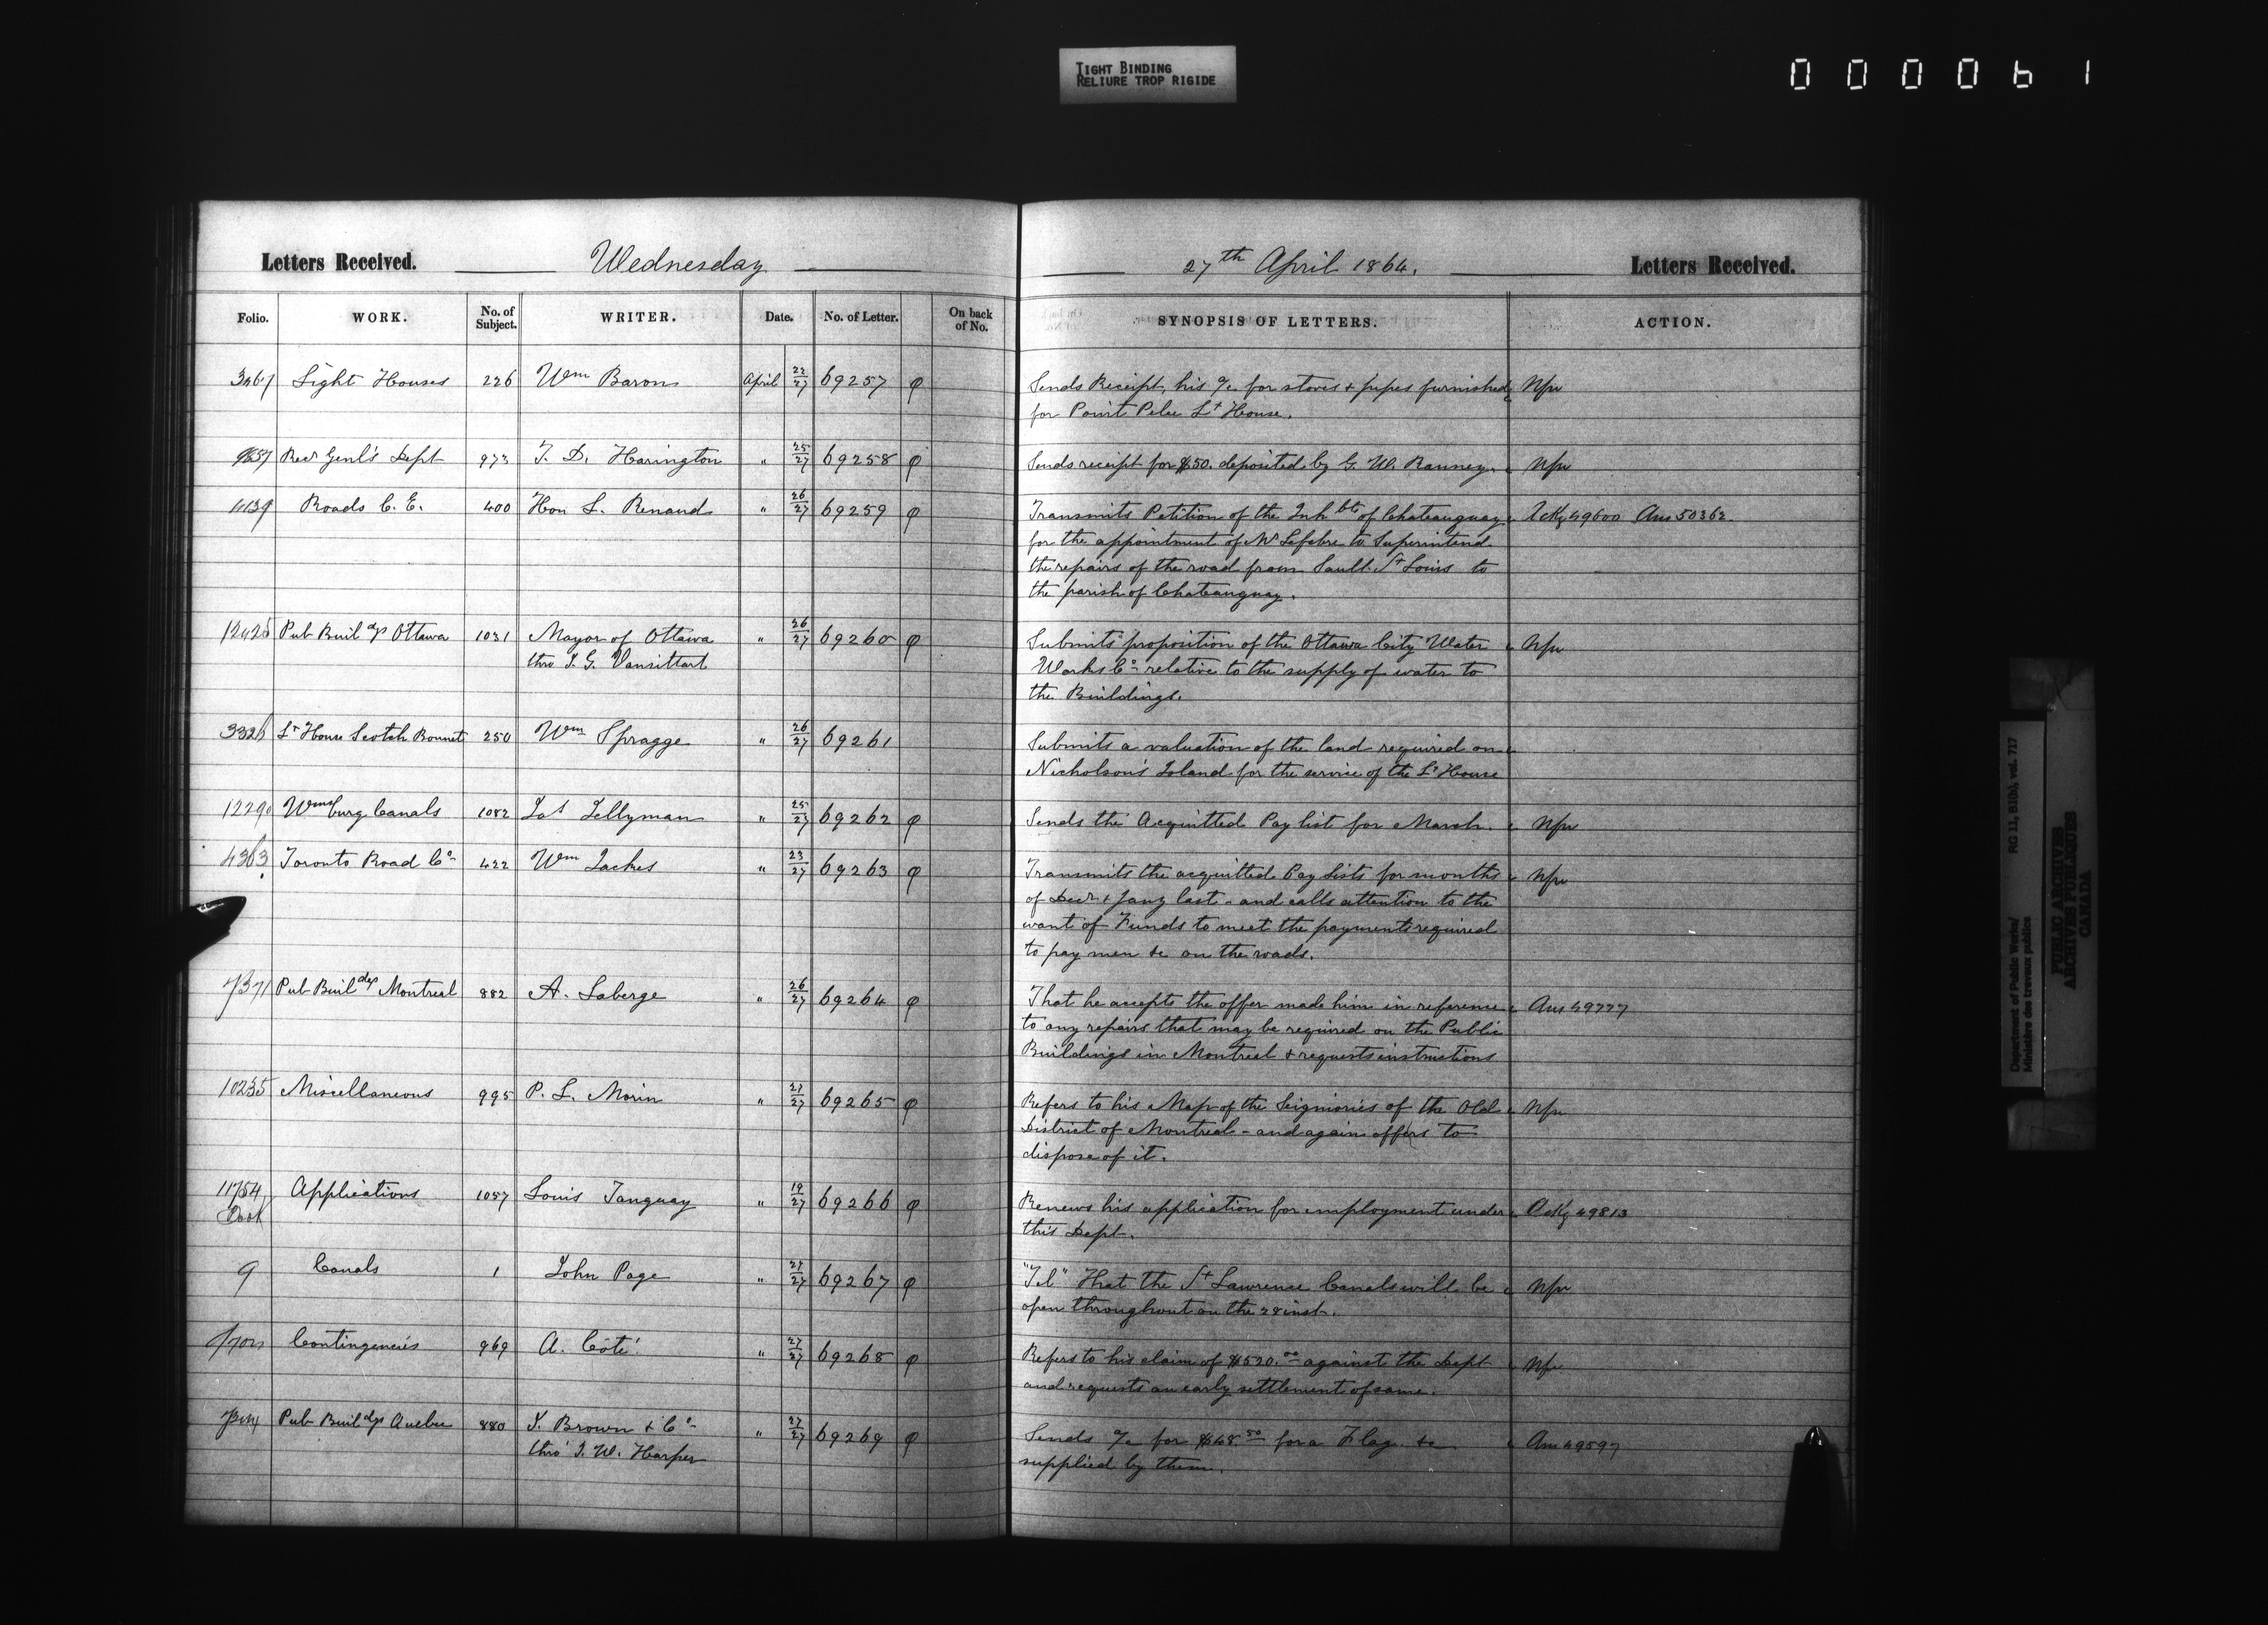 TIGHT BINDING
RELIURE TROP RIGIDE
0 0 0 0 6 1
Letters Received. Wednesday 27th April 1864. Letters Received.
Folio. WORK. No. of Subject. WRITER. Date. No. of Letter. On back of No. SYNOPSIS OF LETTERS. ACTION.
3467 Light Houses 226 Wm Baron April 22/27 69257 φ Sends Receipt, his a/c for stoves & pipes furnished Nfw
for Point Pelee Lt House.
Recr Genl's Dept 973 T. D. Harington " 25/27 69258 φ Sends receipt for $50. deposited by G. W. Ranney. Nfw
11139 Roads C. E. 400 Hon L. Renaud " 26/27 69259 φ Transmits Petition of the Inhbts of Chateauguay Ackg 49600 Ans 50362.
for the appointment of Mr Lefebre to Superintend
the repairs of the road from Sault St Louis to
the parish of Chateauguay.
12425 Pub Buildgs Ottawa 1031 Mayor of Ottawa " 26/27 69260 φ Submits proposition of the Ottawa City Water Nfw
thro J. G. Vansittart Works Co relative to the supply of water to
the Buildings.
3326 Lt House Scotch Bonnet 250 Wm Spragge " 26/27 69261 Submits a valuation of the land required on
Nicholson's Island for the service of the Lt House
12290 Wmsburg Canals 1082 Jas Tellyman " 25/27 69262 φ Sends the Acquitted Pay list for March. Nfw
4363 Toronto Road Co 422 Wm Jackes " 23/27 69263 φ Transmits the acquitted Pay Lists for months Nfw
of Decr & Jany last - and calls attention to the
want of Funds to meet the payments required
to pay men &c on the roads.
7371 Pub Buildgs Montreal 882 A. Laberge " 26/27 69264 φ That he accepts the offer made him in reference Ans 49777
to any repairs that may be required on the Public
Buildings in Montreal & requests instructions
10235 Miscellaneous 995 P. L. Morin " 27/27 69265 φ Refers to his Map of the Seigniories of the Old Nfw
District of Montreal - and again offers to
dispose of it.
11754 Applications 1057 Louis Tanguay " 19/27 69266 φ Renews his application for employment under Ackg 49813
this Dept.
9 Canals 1 John Page " 27/27 69267 φ "Tel" That the St Lawrence Canals will be Nfw
open throughout on the 28 inst.
Contingencies 969 A. Côté " 27/27 69268 φ Refers to his claim of $520.00 against the Dept Nfw
and requests an early settlement of same.
Pub Buildgs Quebec 880 J. Brown & Co " 27/27 69269 φ Sends a/c for $48 50 for a Flag &c Ans 49597
thro' J. W. Harper supplied by them.
Department of Public Works/ RG 11, B1(b), vol. 717
Ministère des travaux publics
PUBLIC ARCHIVES
ARCHIVES PUBLIQUES
CANADA